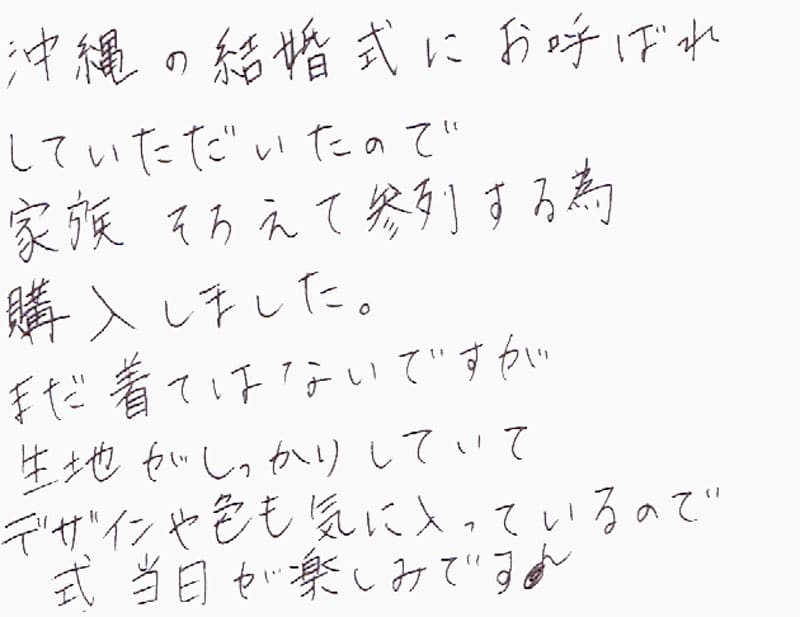 沖縄の結婚式にお呼ばれ
していただいたので
家族そろえて参列する為
購入しました。
まだ着てはないですが
生地がしっかりしていて
デザインや色も気に入っているので
式当日が楽しみです♪